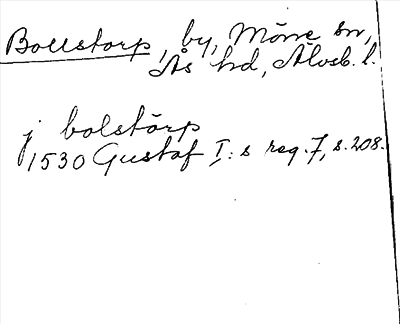 Bollstorp, by, Möne sn,
Ås hd, Älvsb. l.
j bolstörp
1530 Gustaf I:s reg. 7, s. 208.